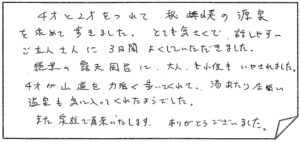 4才と2才をつれて 秘境の源泉
を求めて来ました。とても気さくで、話しやすい
ご主人さんに3日間よくしていただきました。
絶景の露天風呂に、大人も小供もいやされました。
4才が山道を力強く歩いてくれて、湯あたりな
温泉も気に入ってくれたようでした。
また家族で再来いたします。ありがとうございました。